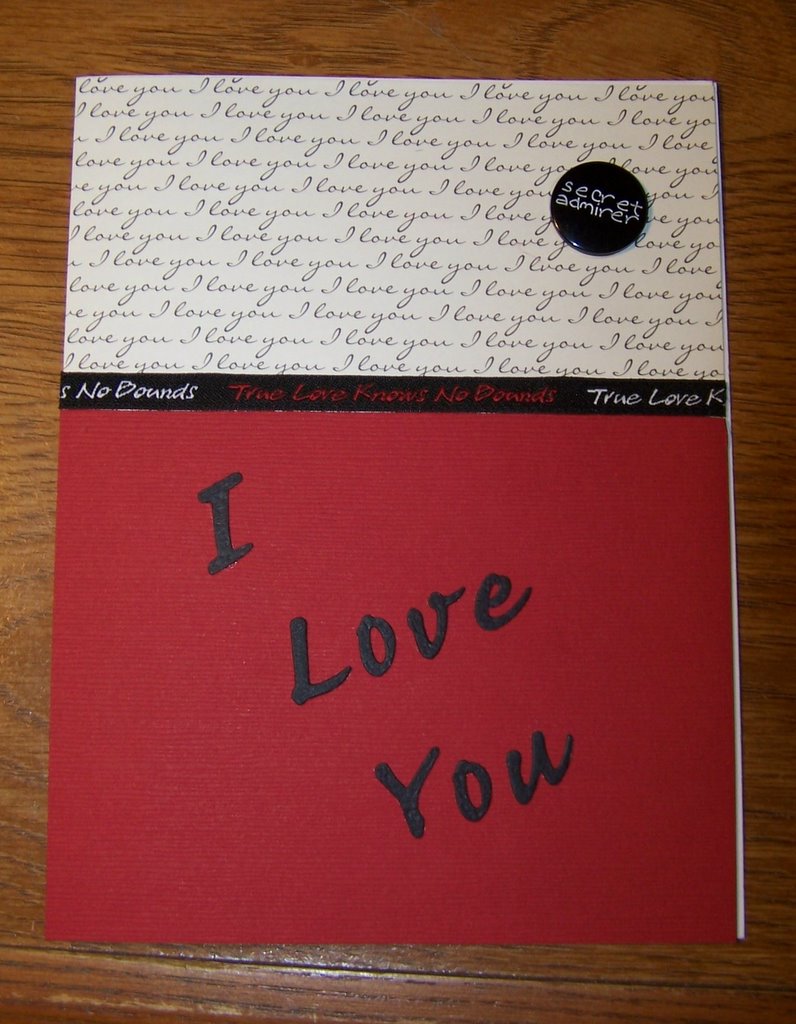 love you I love you I love you I love you I love you
I love you I love you I love you I love you I love yo
u I love you I love you I love you I love you I love
love you I love you I love you I love you love you
ve you I love you I love you I love you you
love you I love you I love you I love ve you
I love you I love you I love you I love you love yo
secret
admirer
u I love you I love you I love you I lvoe you I love
love you I love you I love you I love you I love you
ve you I love you I love you I love you I love you I
love you I love you I love you I love you I love you
I love you I love you I love you I love you I love yo
s No Bounds True Love Knows No Bounds True Love K
I
Love
You